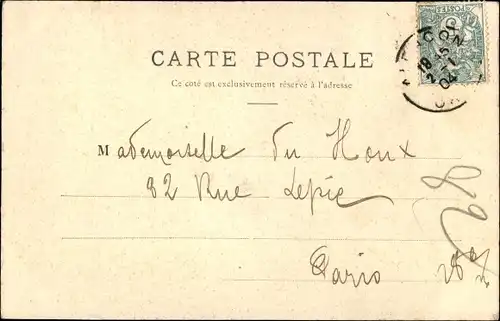 CARTE POSTALE
Ce côté est exclusivement réservé à l'adresse
Mademoiselle Du Houx
82 Rue Lepic
82
Paris
POSTES
18 15
04